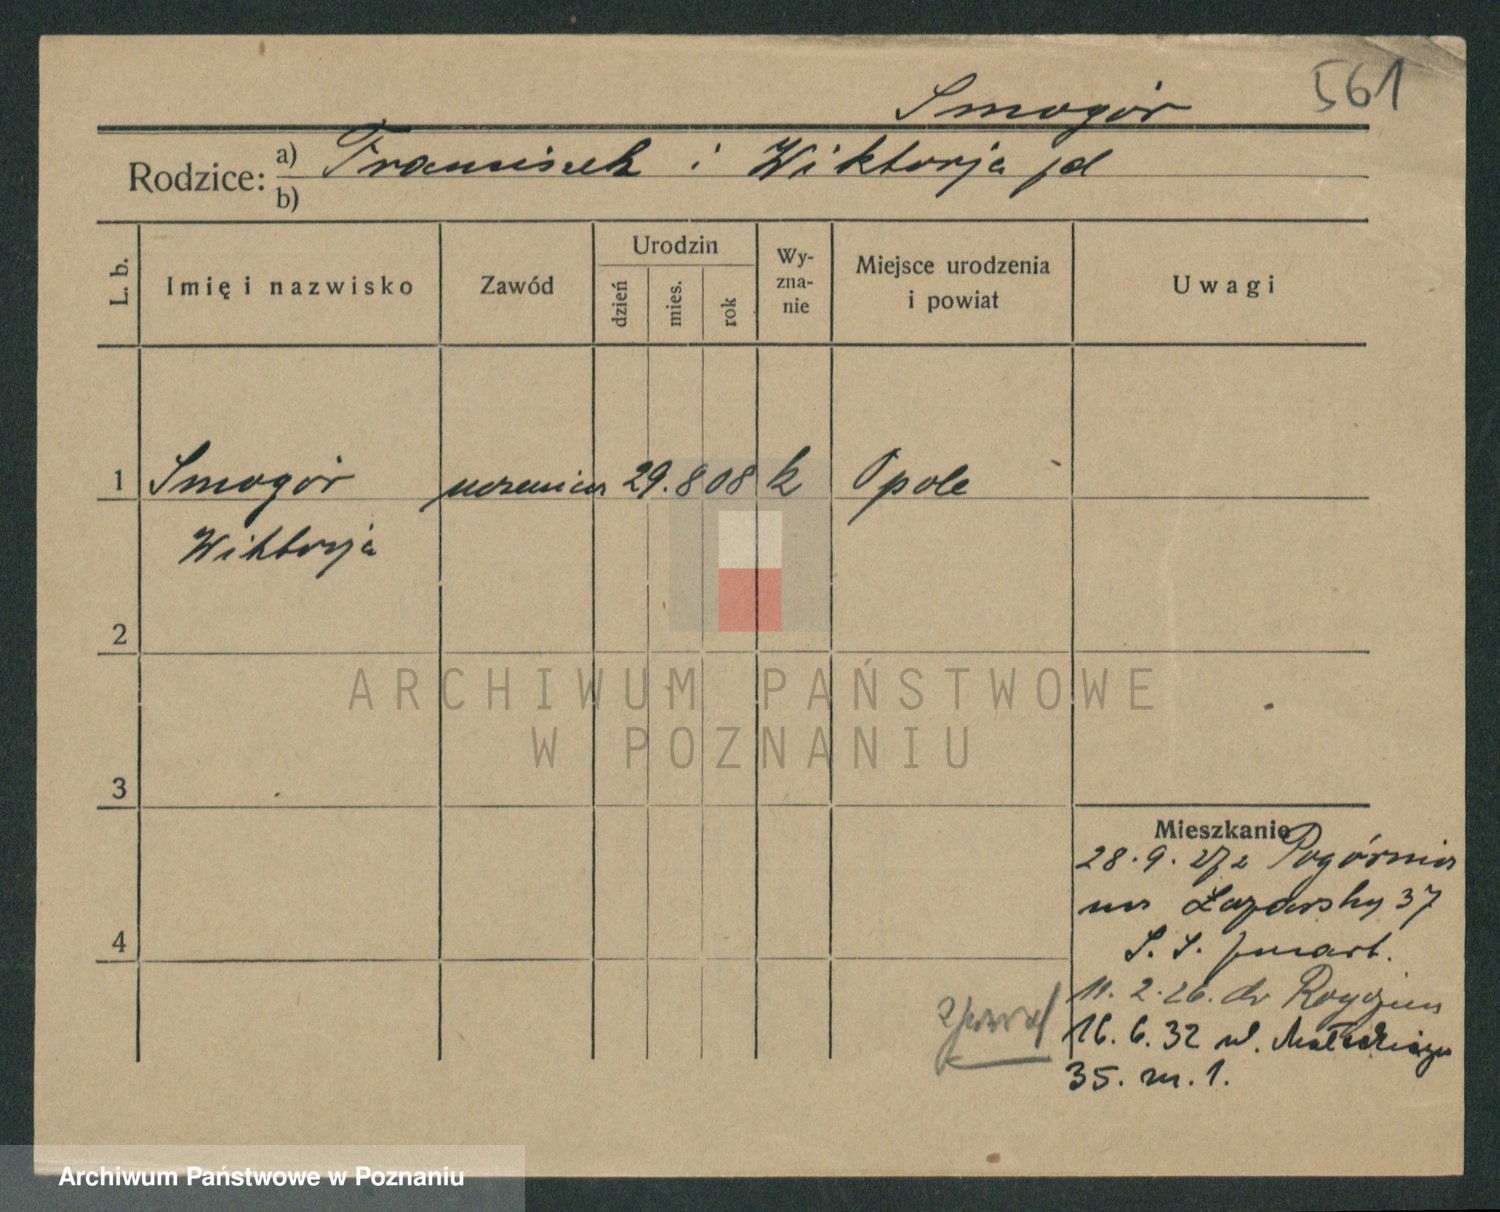 561
Smogór
Rodzice: a) Franciszek i Wiktorja jd
b)
L. b. Imię i nazwisko Zawód Urodzin dzień mies. rok Wy-zna-nie Miejsce urodzenia i powiat Uwagi
1 Smogór uczenica 29. 8 08 k Opole
Wiktorja
2
ARCHIWUM PAŃSTWOWE
W POZNANIU
3
Mieszkanie
28. 9. Pogórnia
Łazarsky 37
4
S. S.
11. 2. 26.
16. 6. 32 ul. Małeckiego
35. m. 1.
Archiwum Państwowe w Poznaniu